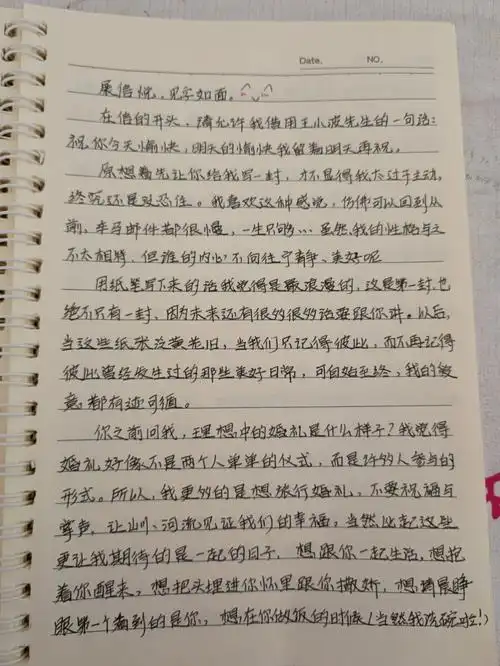 Date. NO.
展信悦，见字如面。
在信的开头，请允许我借用王小波先生的一句话：
祝你今天愉快，明天的愉快我留着明天再祝。
原想着先让你给我写一封，才不显得我太过于主动，
终究还是没忍住。我喜欢这种感觉，仿佛可以回到从
前，车马邮件都很慢，一生只够… 虽然我的性格与之
不太相符，但谁的内心不向往宁静、美好呢
用纸笔写下来的话我觉得是最浪漫的，这是第一封，也
绝不只有一封，因为未来还有很多很多话要跟你讲。以后，
当这些纸张泛黄老旧，当我们只记得彼此，而不再记得
彼此曾经发生过的那些美好日常，可自始至终，我的爱
意都有迹可循。
你之前问我，理想中的婚礼是什么样子？我觉得
婚礼好像不是两个人单单的仪式，而是许多人参与的
形式。所以，我更多的是想旅行婚礼，不要祝福与
掌声，让山川、河流见证我们的幸福，当然比起这些
更让我期待的是一起的日子，想跟你一起生活，想抱
着你醒来，想把头埋进你怀里跟你撒娇，想清晨睁
眼第一个看到的是你，想在你做饭的时候（当然我洗碗啦！）